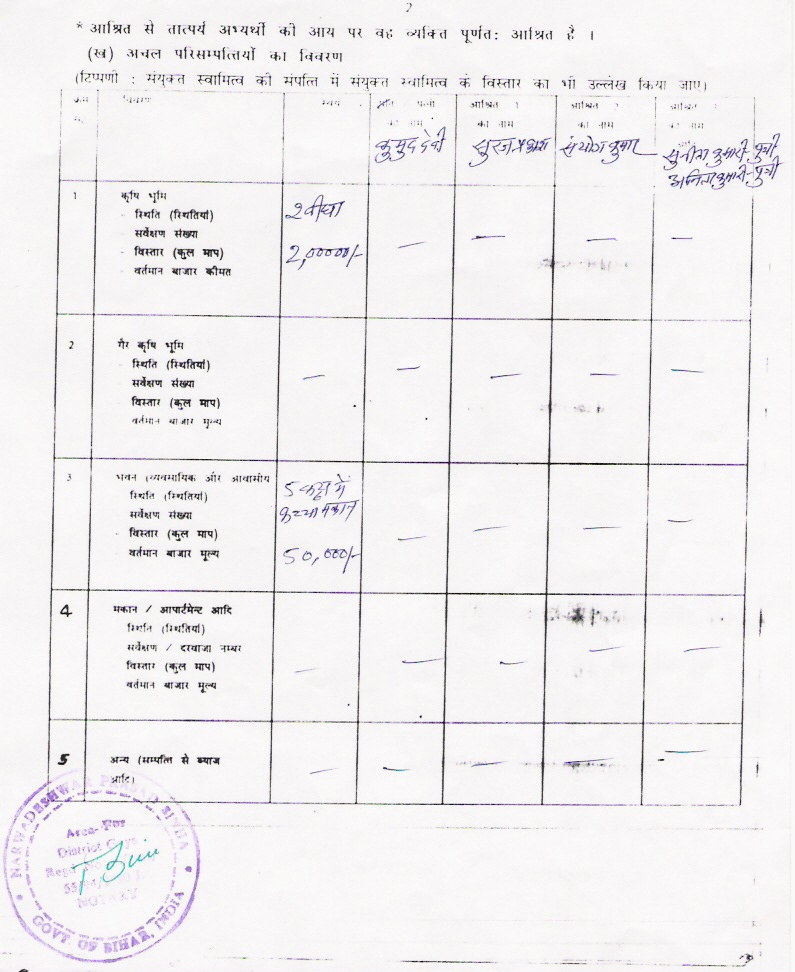 2
* आश्रित से तात्पर्य अभ्यर्थी की आय पर वह व्यक्ति पूर्णत: आश्रित है ।
(ख) अचल परिसम्पत्तियों का विवरण
(टिप्पणी : संयुक्त स्वामित्व की संपत्ति में संयुक्त स्वामित्व के विस्तार का भी उल्लेख किया जाए)
क्रम विवरण स्वयं पति पत्नी आश्रित 1 आश्रित 2 आश्रित
सं. का नाम का नाम का नाम का नाम
कुमुद देवी सुरज प्रकाश संयोग कुमार सुनीता कुमारी-पुत्री
अनिता कुमारी-पुत्री
1 कृषि भूमि
- स्थिति (स्थितियां) 2 वीघा
- सर्वेक्षण संख्या
- विस्तार (कुल माप) 2,00000/- — — — —
- वर्तमान बाजार कीमत
2 गैर कृषि भूमि
- स्थिति (स्थितियां)
सर्वेक्षण संख्या — — — — —
विस्तार (कुल माप)
वर्तमान बाजार मूल्य
3 भवन (व्यवसायिक और आवासीय 5 कट्ठा में
स्थिति (स्थितियां)
सर्वेक्षण संख्या कच्चा मकान
- विस्तार (कुल माप) — — — —
वर्तमान बाजार मूल्य 50,000/-
4 मकान / आपार्टमेन्ट आदि
स्थिति (स्थितियां)
सर्वेक्षण / दरवाजा नम्बर
विस्तार (कुल माप) — — — — —
वर्तमान बाजार मूल्य
5 अन्य (सम्पत्ति से ब्याज — — — — —
आदि)
NARWADESHWAR PRASAD SINHA
Area-For
District Gaya
Regd
NOTARY
GOVT OF BIHAR, INDIA